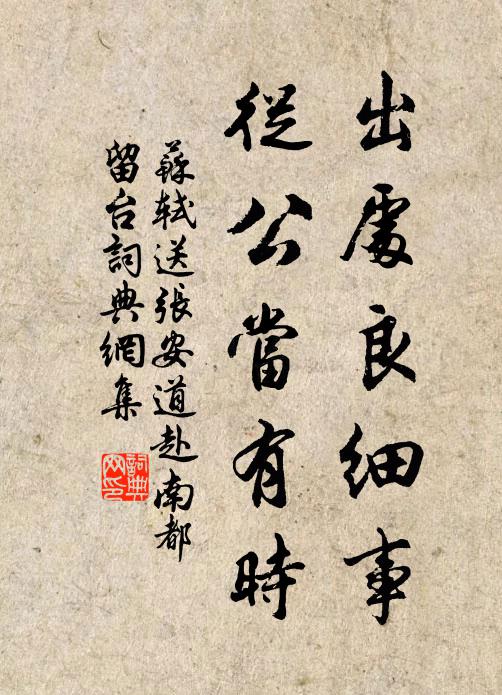 出處良細事
從公當有時
蘇軾送張安道赴南都
留台詞典網集
詞典網印